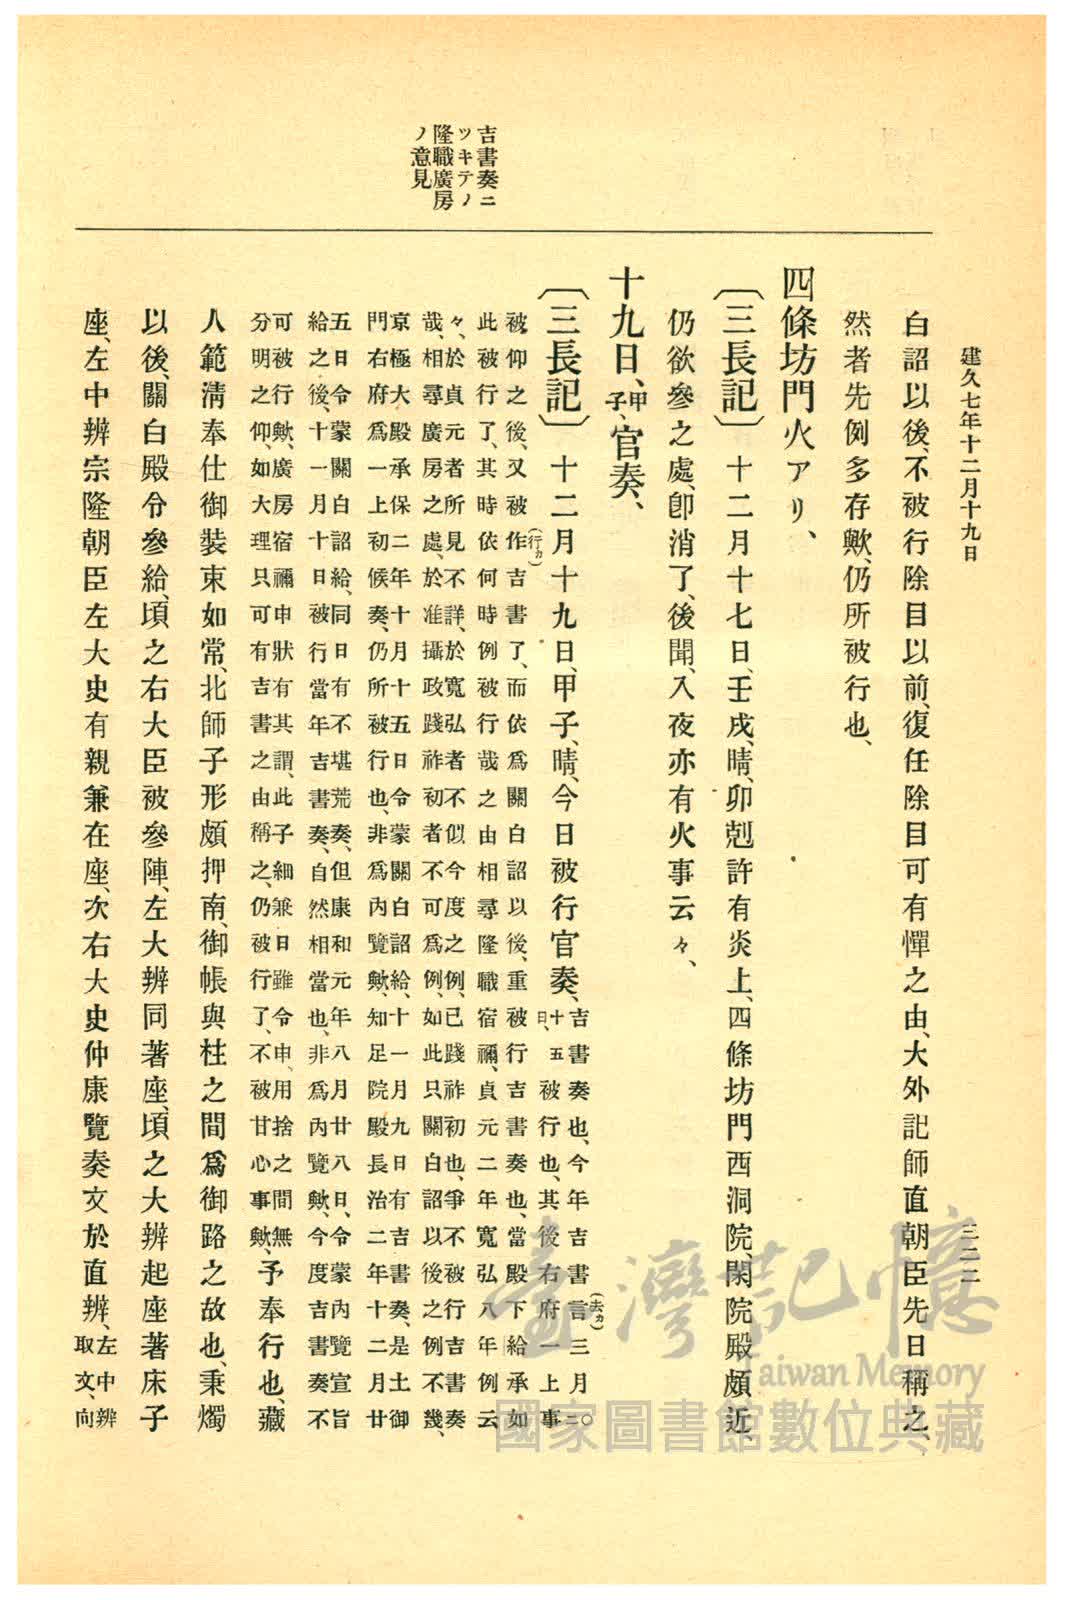 建久七年十二月十九日
三二二
吉書奏ニ
ツキテノ
隆職廣房
ノ意見
白詔以後、不被行除目以前、復任除目可有憚之由、大外記師直朝臣先日稱之、
然者先例多存歟、仍所被行也、
四條坊門火アリ、
〔三長記〕十二月十七日、壬戌、晴、卯剋許有炎上、四條坊門西洞院、閑院殿頗近、
仍欲參之處、卽消了、後聞、入夜亦有火事云々、
十九日、甲子、官奏、
〔三長記〕十二月十九日、甲子、晴、今日被行官奏、吉書奏也、今年吉書言(去カ)三月〇二
十五日、被行也、其後右府一上事
被仰之後、又被作(行カ)吉書了、而依爲關白詔以後、重被行吉書奏也、當殿下給承如
此被行了、其時依何時例被行哉之由相尋隆職宿禰、貞元二年寬弘八年例云
々、於貞元者所見不詳、於寬弘者不似今度之例、已踐祚初也、爭不被行吉書奏
哉、相尋廣房之處、於准攝政踐祚初者不可爲例、如此只關白詔以後之例不幾、
京極大殿承保二年十月十五日令蒙關白詔給、十一月九日有吉書奏、是土御
門右府爲一上初候奏、仍所被行也、非爲內覽歟、知足院殿長治二年十二月廿
五日令蒙關白詔給、同日有不堪荒奏、但康和元年八月廿八日、令蒙內覽宣旨
給之後、十一月十日被行當年吉書奏、自然相當也、非爲內覽歟、今度吉書奏不
可被行歟、廣房宿禰申狀有其謂、此子細兼日雖令申、用捨之間無
分明之仰、如大理只可有吉書之由稱之、仍被行了、不被甘心事歟、予奉行也、藏
人範淸奉仕御裝束如常、北師子形頗押南、御帳與柱之間爲御路之故也、秉燭
以後、關白殿令參給、頃之右大臣被參陣、左大辨同著座、頃之大辨起座著床子
座、左中辨宗隆朝臣左大史有親兼在座、次右大史仲康覽奏文於直辨、左中辨取文、向
臺灣記憶
Taiwan Memory
國家圖書館數位典藏